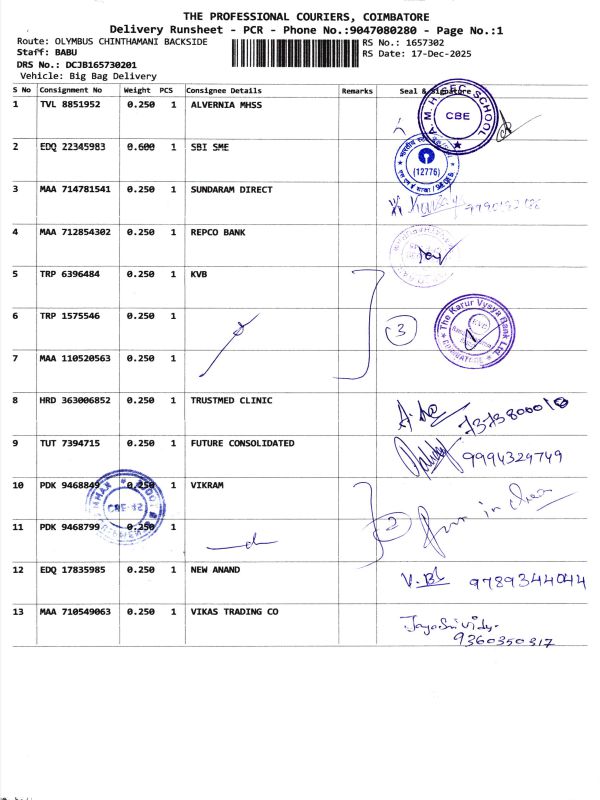 THE PROFESSIONAL COURIERS, COIMBATORE
Delivery Runsheet - PCR - Phone No.:9047080280 - Page No.:1
Route: OLYMBUS CHINTHAMANI BACKSIDE RS No.: 1657302
Staff: BABU RS Date: 17-Dec-2025
DRS No.: DCJB165730201
Vehicle: Big Bag Delivery
S No Consignment No Weight PCS Consignee Details Remarks Seal & Signature
1 TVL 8851952 0.250 1 ALVERNIA MHSS
CBE
2 EDQ 22345983 0.600 1 SBI SME
(12776)
3 MAA 714781541 0.250 1 SUNDARAM DIRECT
4 MAA 712854302 0.250 1 REPCO BANK
5 TRP 6396484 0.250 1 KVB
6 TRP 1575546 0.250 1
3 The Karur Vysya Bank Ltd.
7 MAA 110520563 0.250 1
8 HRD 363006852 0.250 1 TRUSTMED CLINIC
9 TUT 7394715 0.250 1 FUTURE CONSOLIDATED
9994329749
10 PDK 9468849 0.250 1 VIKRAM
2
11 PDK 9468799 0.250 1
12 EDQ 17835985 1 NEW ANAND
0.250
V.BL 9789344044
13 MAA 710549063 0.250 1 VIKAS TRADING CO
9360350317